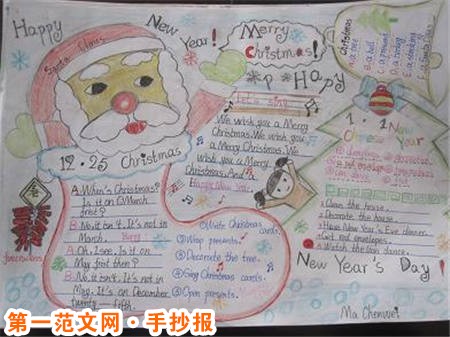 Happy New Year!
Merry Christmas!
Santa Claus
Happy
Christmas
A. a tree
B. a bell
C. a present
D. a
E. a stocking
F. a Santa Claus
Let's sing
We wish you a Merry
Christmas. We wish you
a Merry Christmas. We
wish you a Merry
Christmas. And a
Happy New Year.
12·25 Christmas
A: When's Christmas?
Is it on March
first?
B: No, it isn't. It's not in
March.
A: Oh, I see. Is it on
May first then?
B: No, it isn't. It's not in
May. It is on December
twenty—fifth.
firecrackers
①Write Christmas cards.
②Wrap presents.
③Decorate the tree.
④Sing Christmas cards.
⑤Open presents.
1·1 New
Chinese Year
Clean the house.
Decorate the house.
Have New Year's Eve dinner.
Get red envelopes.
Watch the lion dance.
New Year's Day!
Ma Chenwei
第一范文网·手抄报